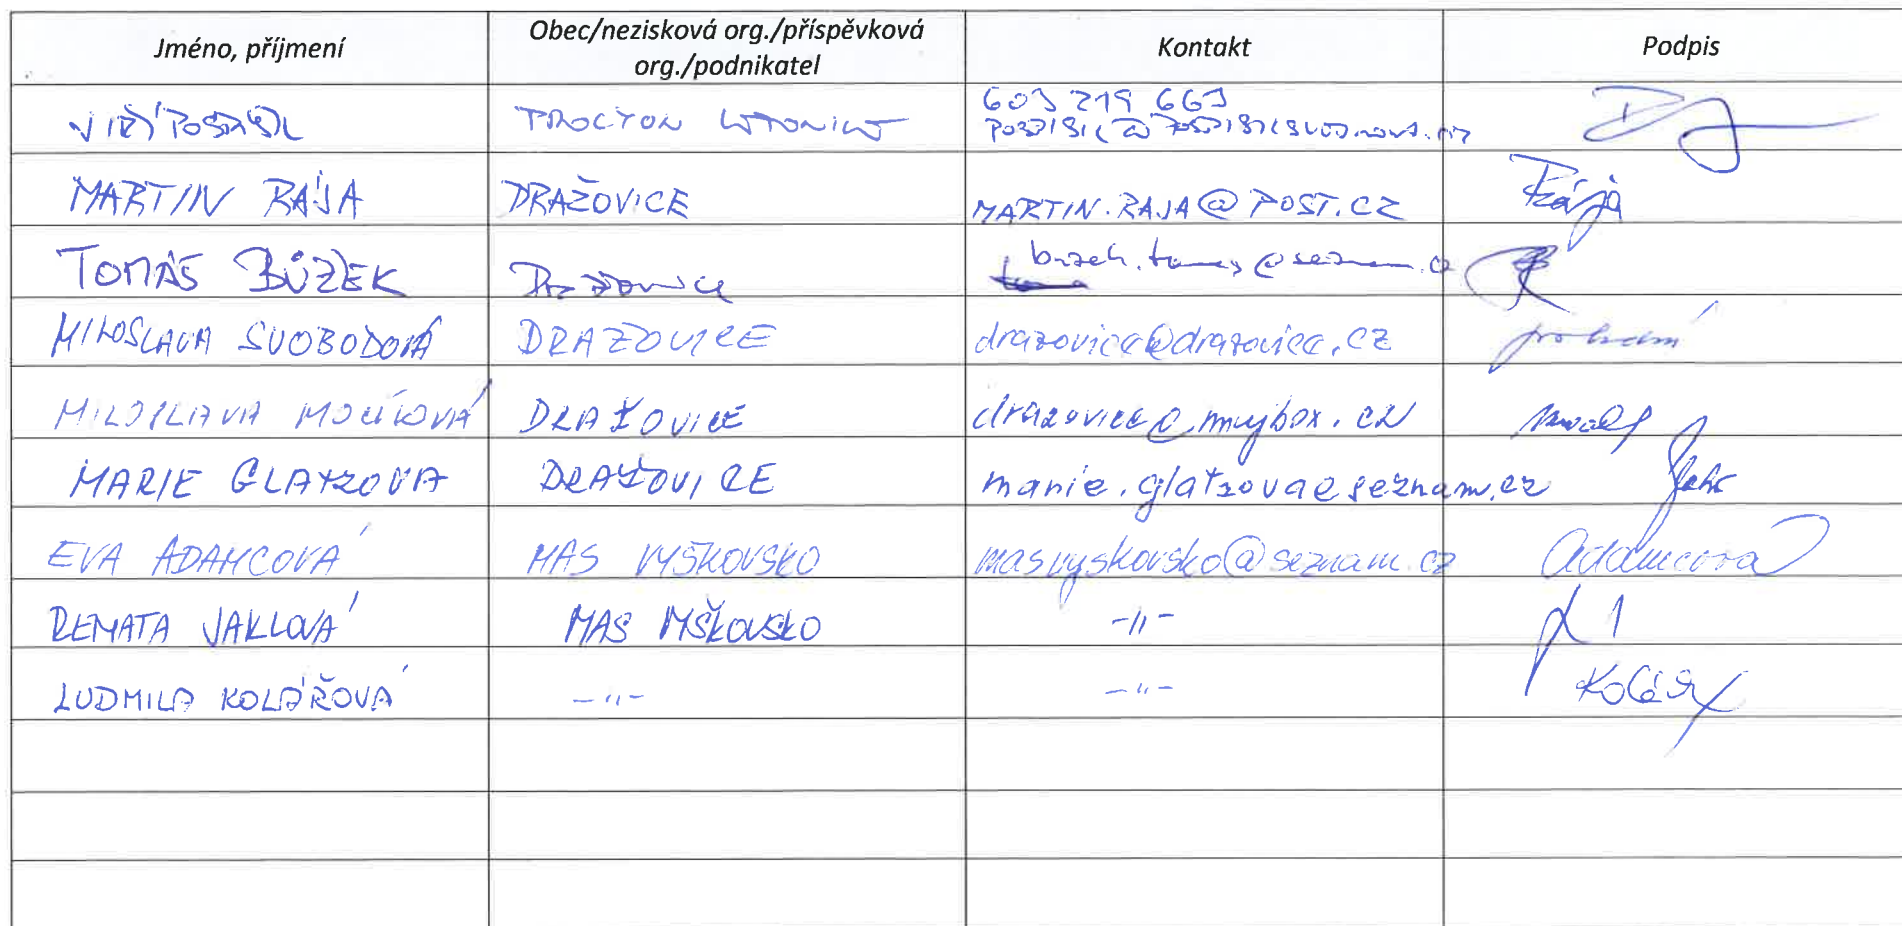 Jméno, příjmení
Obec/nezisková org./příspěvková
org./podnikatel
Kontakt
Podpis
JIŘÍ POSPÍŠIL PROCYON LETONICE 603 219 663
MARTIN RÁJA DRAŽOVICE MARTIN.RAJA@POST.CZ Rája
TOMÁŠ BŮZEK Dražovice buzek.tomas@seznam.cz
MILOSLAVA SVOBODOVÁ DRAŽOVICE drazovice@drazovice.cz
MILOSLAVA DRAŽOVICE drazovice@mujbox.cz
MARIE GLATZOVA DRAŽOVICE marie.glatzova@seznam.cz
EVA ADAMCOVÁ MAS VYŠKOVSKO masvyskovsko@seznam.cz Adamcová
RENATA JAKLOVÁ MAS VYŠKOVSKO -11-
LUDMILA KOLÁŘOVÁ -11- -11-